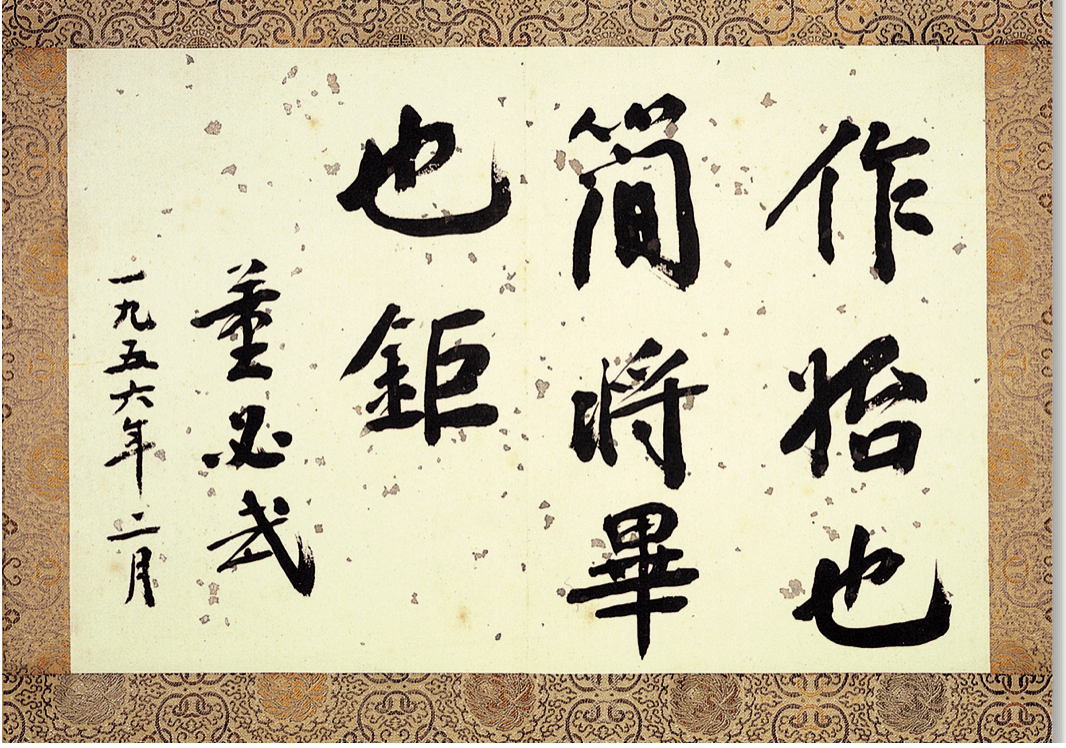 作始也
簡将畢
也鉅
董必武
一九五六年二月